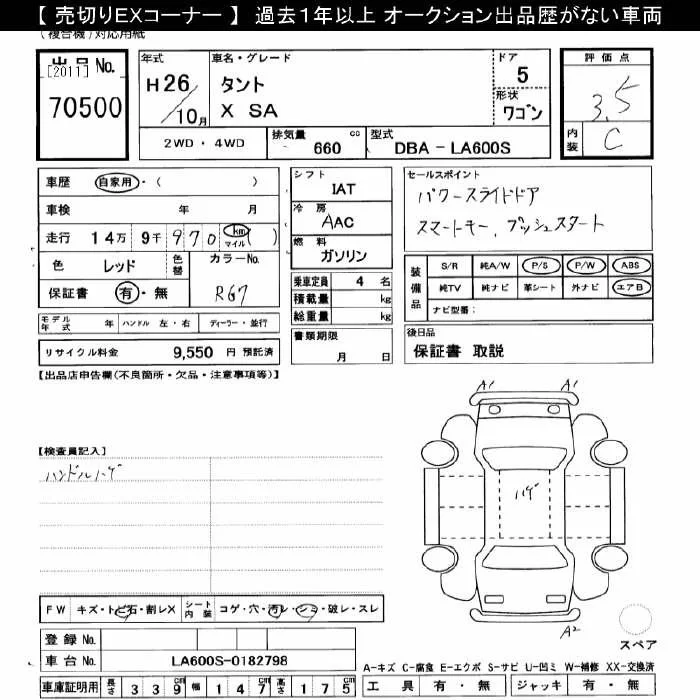 【 売切りEXコーナー 】 過去１年以上 オークション出品歴がない車両
(複合機)対応用紙
出品 No.
[2011]
70500
年式
H26/10月
車名・グレード
タント
X SA
ドア
5
形状
ワゴン
2WD ・ 4WD
排気量
660 cc
型式
DBA - LA600S
評価点
3.5
内装
C
車歴 自家用・( )
車検 年 月
走行 14万 9千 970 km マイル ( )
色 レッド 色替 カラーNo.
保証書 有・無 R67
モデル年式 年 ハンドル 左・右 ディーラー・並行
リサイクル料金 9,550 円 預託済
シフト
IAT
冷房
AAC
燃料
ガソリン
乗車定員 4 名
積載量 kg
総重量 kg
書類期限
月 日
セールスポイント
パワースライドドア
スマートキー、プッシュスタート
装備品
S/R 純A/W P/S P/W ABS
純TV 純ナビ 革シート 外ナビ エアB
ナビ型番：
後日品
保証書 取説
【出品店申告欄(不良箇所・欠品・注意事項等)】
【検査員記入】
ハンドルハゲ
A1 A1
ハゲ
A2
スペア
FW キズ・トビ石・割レX シート内装 コゲ・穴・汚レ・シミ・破レ・スレ
登録 No.
車台 No. LA600S-0182798
車庫証明用 長さ 339cm 幅 147cm 高さ 175cm
A-キズ C-腐食 E-エクボ S-サビ U-凹ミ W-補修 XX-交換済
工具 有・無 ジャッキ 有・無